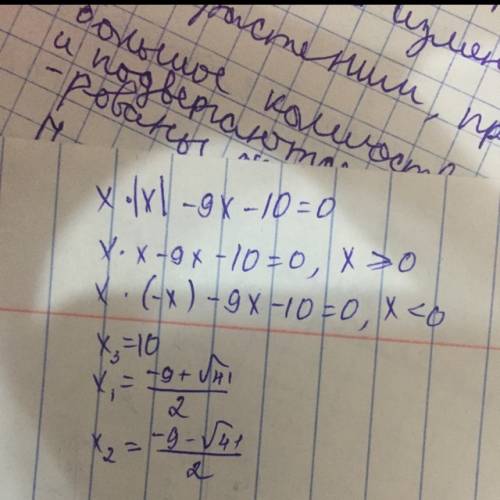 измен
растении, пр
большое количеств
и подвергаются
-рованы
x·|x| -9x-10=0
x·x-9x-10=0, x≥0
x·(-x)-9x-10=0, x<0
x₃=10
x₁= (-9+√41)/2
x₂= (-9-√41)/2